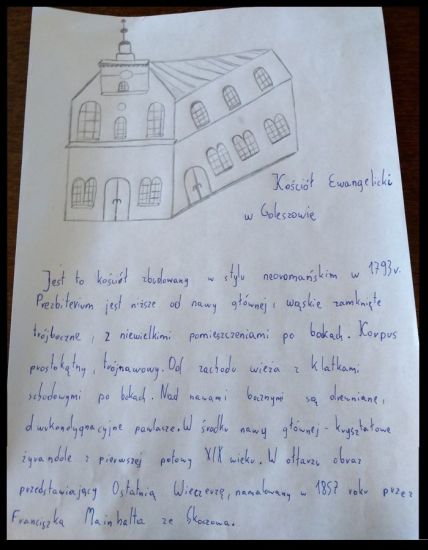 Kościół Ewangelicki
w Goleszowie
Jest to kościół zbudowany w stylu neoromańskim w 1793r.
Prezbiterium jest niższe od nawy głównej i wąskie zamknięte
trójbocznie, z niewielkimi pomieszczeniami po bokach. Korpus
prostokątny, trójnawowy. Od zachodu wieża z klatkami
schodowymi po bokach. Nad nawami bocznymi są drewniane,
dwukondygnacyjne pawlacze. W środku nawy głównej - kryształowe
żyrandole z pierwszej połowy XIX wieku. W ołtarzu obraz
przedstawiający Ostatnią Wieczerzę, namalowany w 1857 roku przez
Franciszka Mainhalta ze Skoczowa.